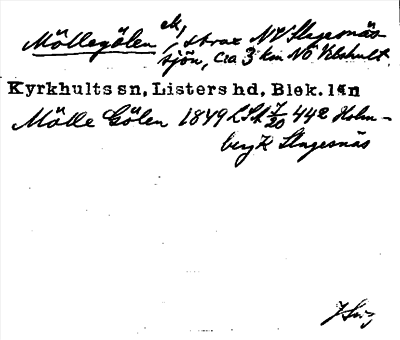 Möllegölen ek, strax NV Slagesnäs
sjön, ca 3 km NÖ Vilshult.
Kyrkhults sn, Listers hd, Blek. län
Mölle Gölen 1849 LSk 7/20 442 Holm-
berg K Slagesnäs